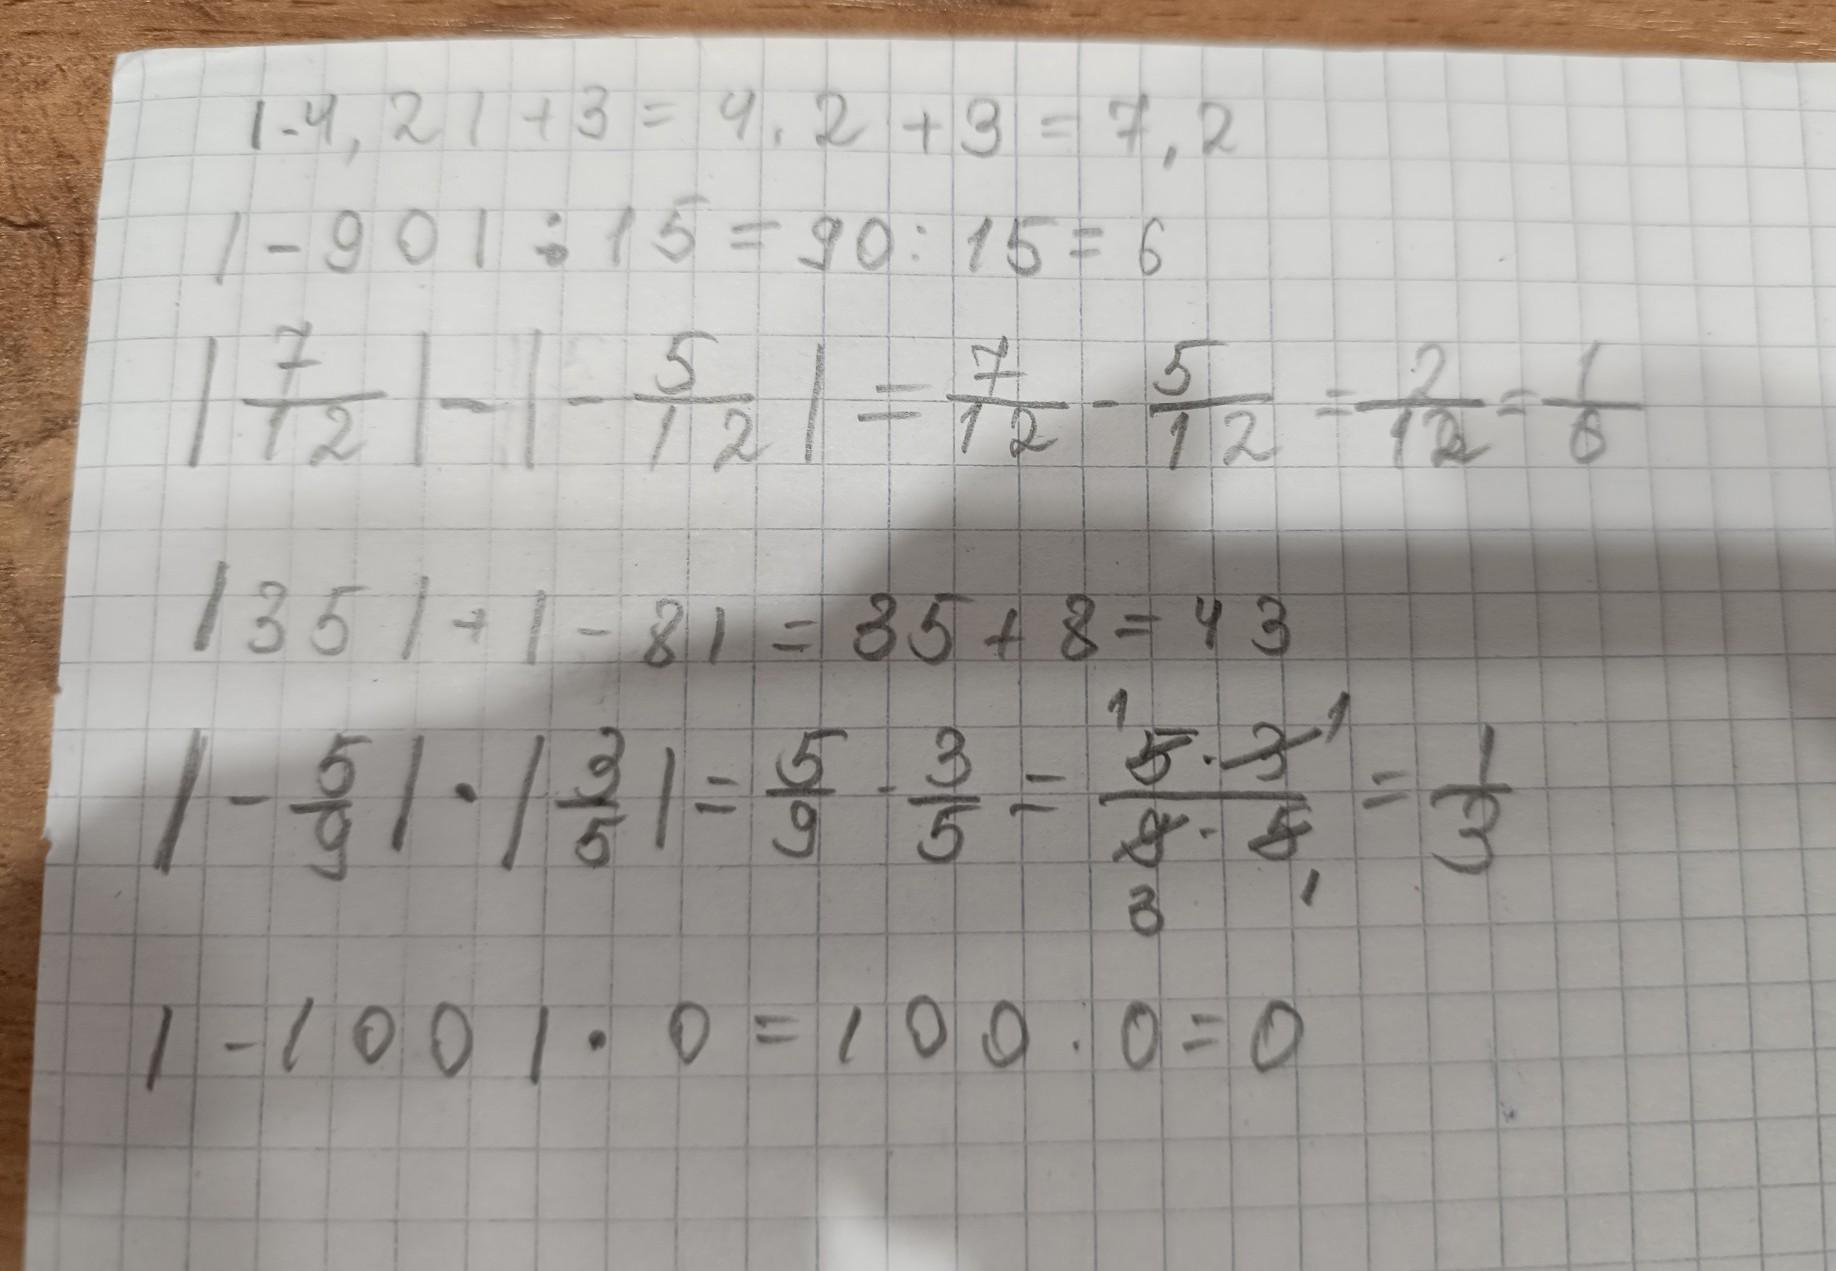 |-4,2|+3=4,2+3=7,2
|-90|:15=90:15=6
|7/12|-|-5/12|=7/12-5/12=2/12=1/6
|35|+|-8|=35+8=43
|-5/9|·|3/5|=5/9·3/5=5·3/9·5=1/3
|-100|·0=100·0=0